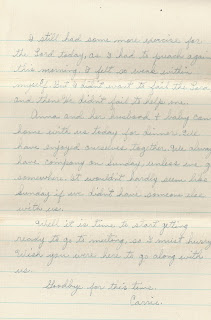 I still had some more exercise for
the Lord today, as I had to preach again
this morning. I felt so weak within
myself. But I didn't want to fail the Lord
and there He didn't fail to help me.
Anna and her husband & baby came
home with us today for dinner. We
have enjoyed ourselves together. We always
have company on Sunday, unless we go
somewhere. It wouldn't hardly seem like
Sunday if we didn't have someone else
with us.
Well it is time to start getting
ready to go to meeting, so I must hurry.
Wish you were here to go along with
us.
Goodbye for this time.
Carrie.